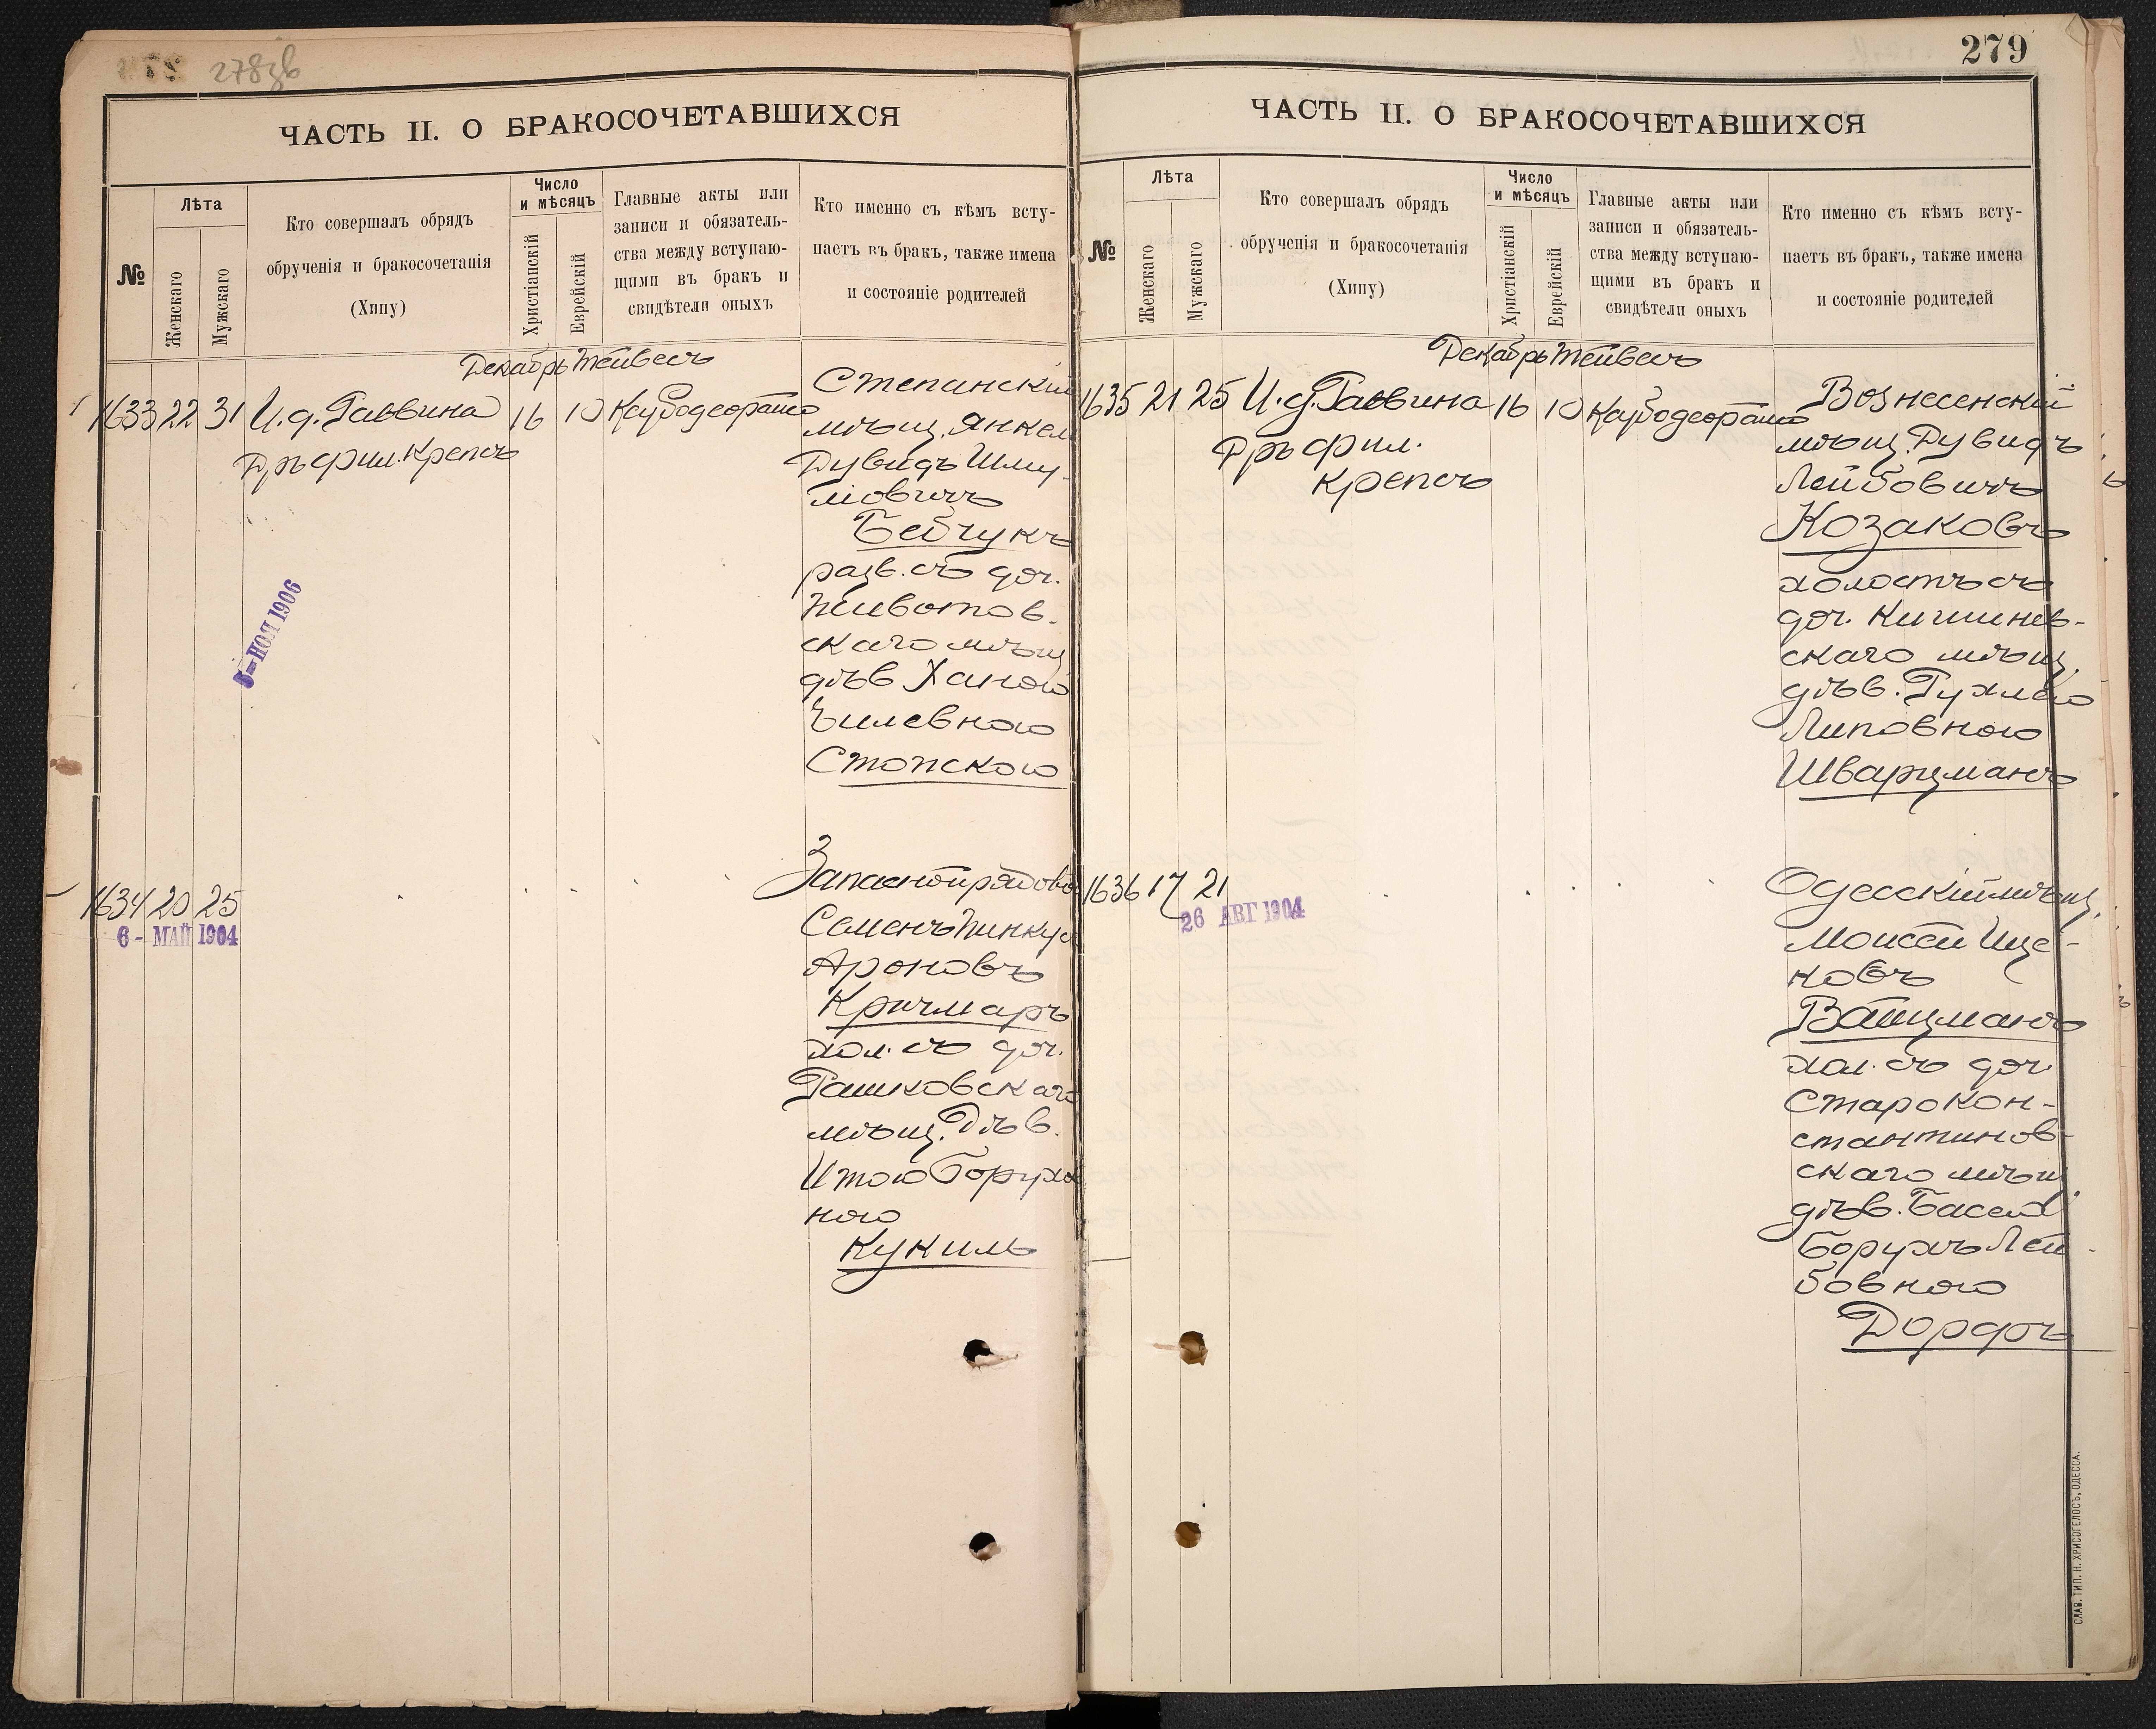 278зв
ЧАСТЬ II. О БРАКОСОЧЕТАВШИХСЯ
№
Лѣта
Женскаго
Мужскаго
Кто совершалъ обрядъ
обрученія и бракосочетанія
(Хипу)
Число
и мѣсяцъ
Христіанскій
Еврейскій
Главные акты или
записи и обязатель-
ства между вступаю-
щими въ бракъ и
свидѣтели оныхъ
Кто именно съ кѣмъ всту-
паетъ въ бракъ, также имена
и состояніе родителей
Декабрь Тейвесъ
1633 22 31 И. д. Раввина 16 10
Дръ фил. Крепсъ
Степанскій
мѣщ. Янкел
Дувидъ Шму-
ліовичъ
Бебчукъ
разв. съ доч.
Животов-
скаго мѣщ
дѣв Ханою
Чилевною
Стопскою
5-НОЯ 1906
1634 20 25
6- МАЙ 1904
Запасной рядово
Семенъ Пинкус
Ароновъ
Кричмаръ
хол. съ доч.
Рашковскаго
мѣщ. Дѣв.
Итою Борухо
ною
Кукиль
279
ЧАСТЬ II. О БРАКОСОЧЕТАВШИХСЯ
№
Лѣта
Женскаго
Мужскаго
Кто совершалъ обрядъ
обрученія и бракосочетанія
(Хипу)
Число
и мѣсяцъ
Христіанскій
Еврейскій
Главные акты или
записи и обязатель-
ства между вступаю-
щими въ бракъ и
свидѣтели оныхъ
Кто именно съ кѣмъ всту-
паетъ въ бракъ, также имена
и состояніе родителей
Декабрь Тейвесъ
1635 21 25 И. д. Раввина 16 10
Дръ фил.
Крепсъ
Вознесенскій
мѣщ. Дувидъ
Лейбовичъ
Козаковъ
холостъ съ
доч. Кишинев-
скаго мѣщ.
дѣв. Рухлею
Липовною
Шварцманъ
1636 17 21
26 АВГ 1904
Одесскій мѣщ.
Моисей Ице-
ковъ
Вайцманъ
хол. съ доч
Старокон-
стантинов-
скаго мѣщ.
дѣв. Басей
Борухъ Лей-
бовною
Дорфъ
СЛАВ. ТИП. Н. ХРИСОГЕЛОСЪ, ОДЕССА.